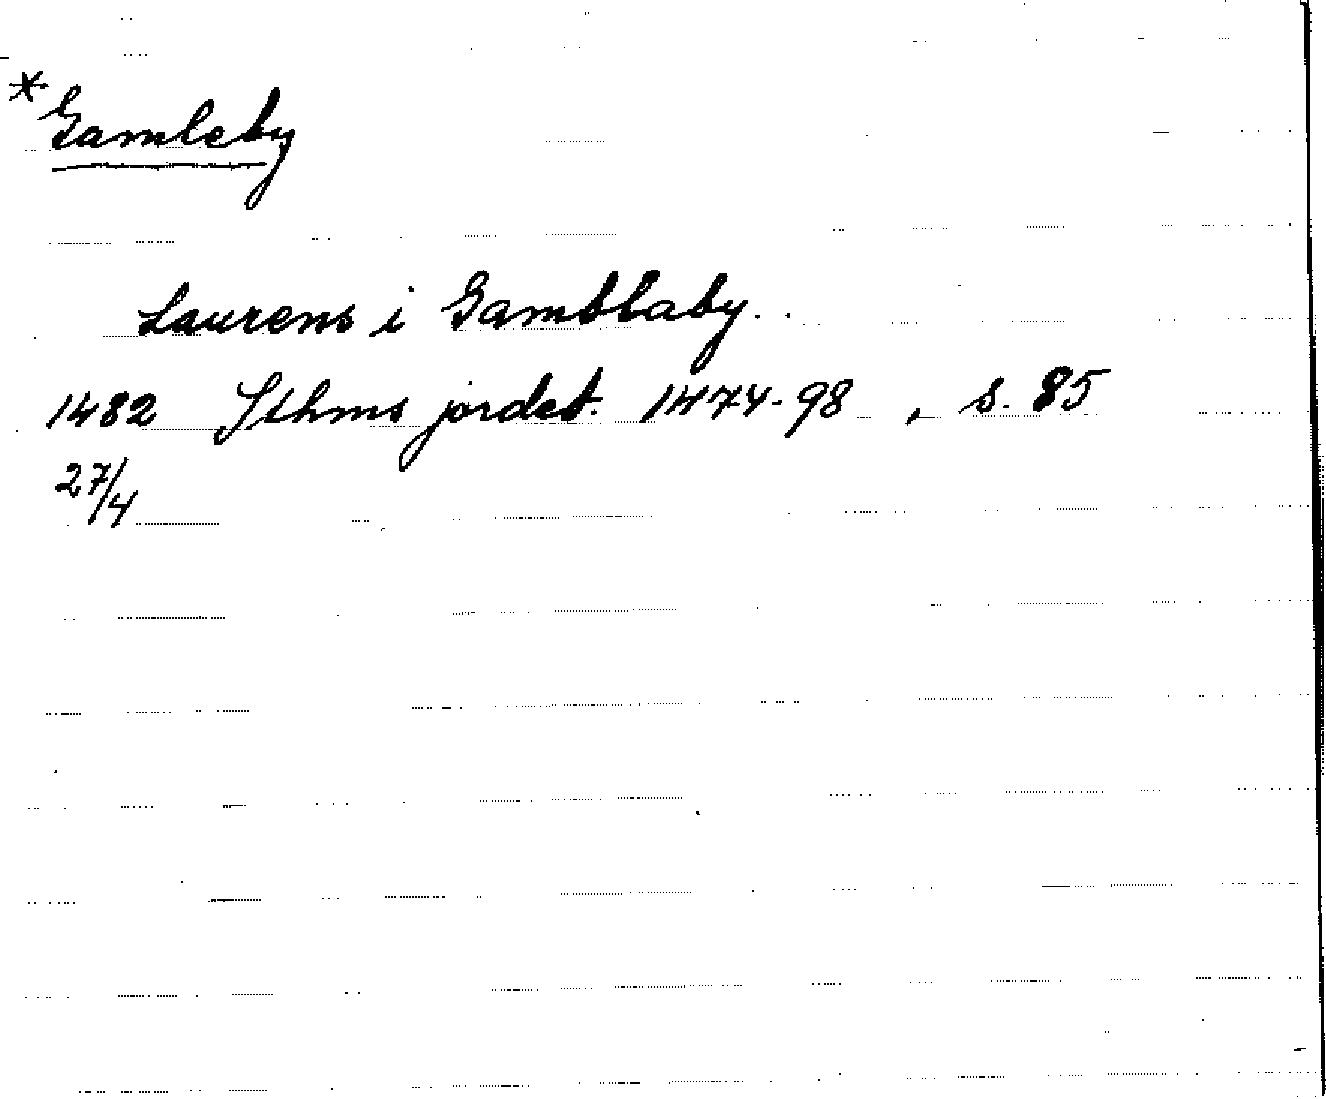 *Gamleby
Laurens i Gamblaby.
1482 Sthms jordeb. 1474-98, s. 85
27/4